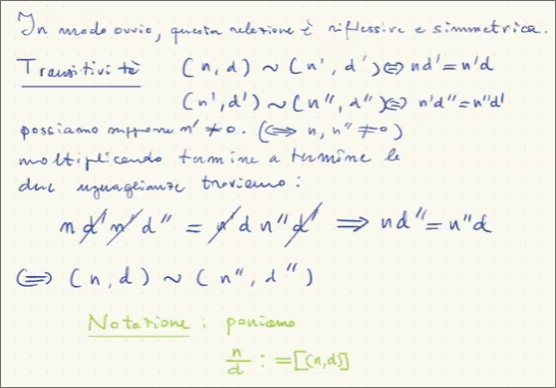 In modo ovvio, questa relazione è riflessiva e simmetrica.
Transitività (n, d) ~ (n', d') ⇔ nd' = n'd
(n', d') ~ (n'', d'') ⇔ n'd'' = n''d'
possiamo supporre n' ≠ 0. (⇔ n, n'' ≠ 0)
moltiplicando termine a termine le
due uguaglianze troviamo:
n d' n' d'' = n' d n'' d' ⇒ nd'' = n''d
(⇔) (n, d) ~ (n'', d'')
Notazione: poniamo
n/d := [(n,d)]